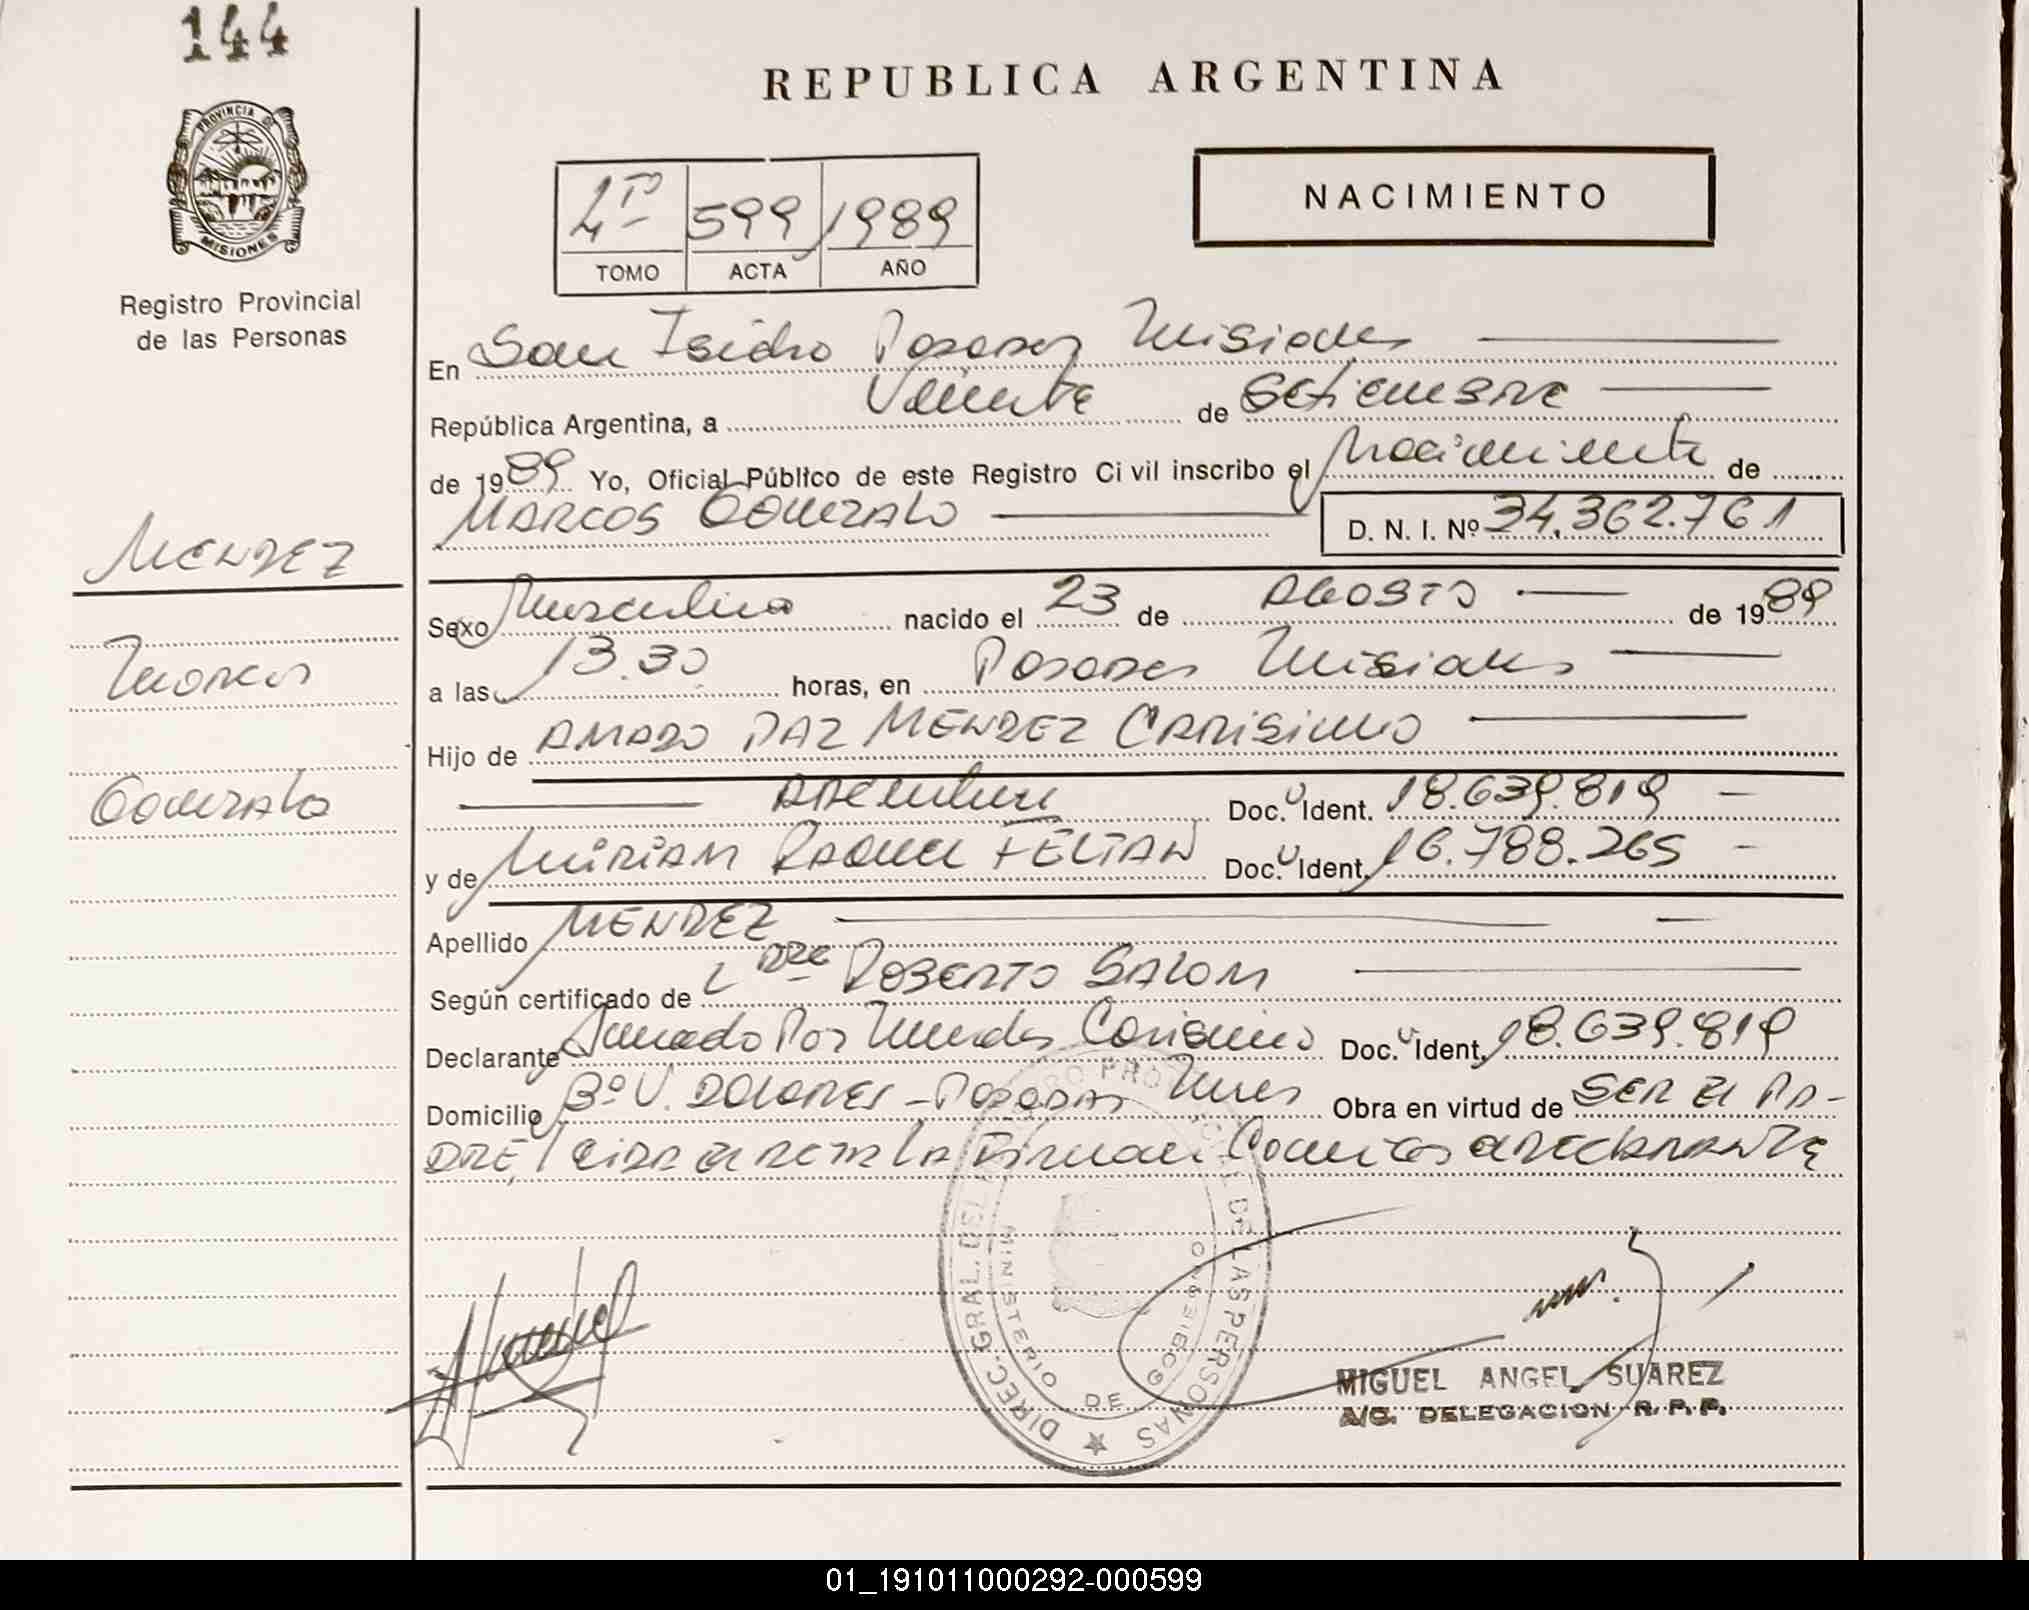 144
PROVINCIA DE
MISIONES
Registro Provincial
de las Personas
REPUBLICA ARGENTINA
NACIMIENTO
4º 599 1989
TOMO ACTA AÑO
En San Isidro Posadas Misiones
República Argentina, a Veinte de Setiembre
de 1989 Yo, Oficial Público de este Registro Civil inscribo el Nacimiento de
MARCOS GONZALO D. N. I. Nº 34.362.761
MENDEZ
Marcos
Gonzalo
Sexo Masculino nacido el 23 de AGOSTO de 1989
a las 13.30 horas, en Posadas Misiones
Hijo de AMADO PAZ MENDEZ CARISIMO
Doc. Ident. 18.639.819
y de MIRIAM RAQUEL FELTAN Doc. Ident. 16.788.265
Apellido MENDEZ
Según certificado de ROBERTO SALOM
Declarante Amado Paz Mendez Carisimo Doc. Ident. 18.639.819
Domicilio Bº V. DOLORES - POSADAS Mnes Obra en virtud de SER El PA-
DRE / leida el acta la firman Conmigo el declarante
DIREC. GRAL. DEL REGISTRO PROVINCIAL DE LAS PERSONAS
MINISTERIO DE GOBIERNO
MIGUEL ANGEL SUAREZ
A/C. DELEGACION R. P. P.
01_191011000292-000599